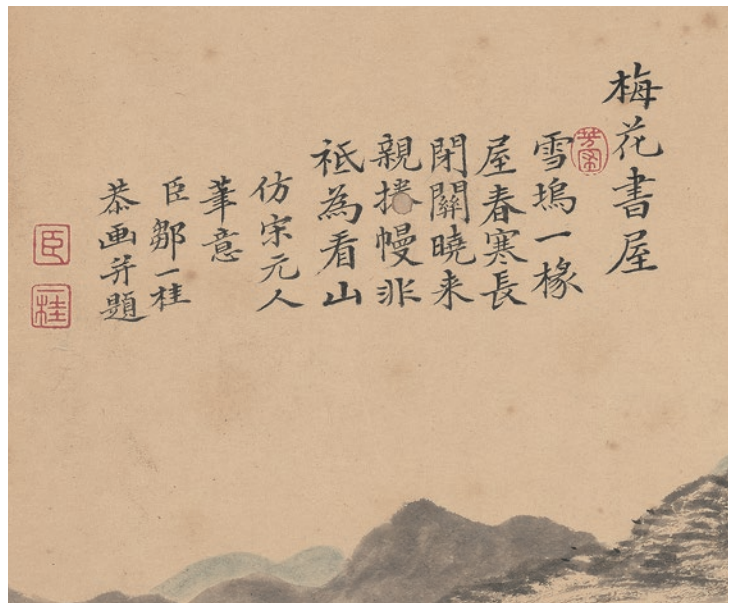 梅花書屋
雪塢一椽
屋春寒長
閉關曉来
親捲幔非
祇為看山
仿宋元人
筆意
臣鄒一桂
恭画并題
臣
一桂